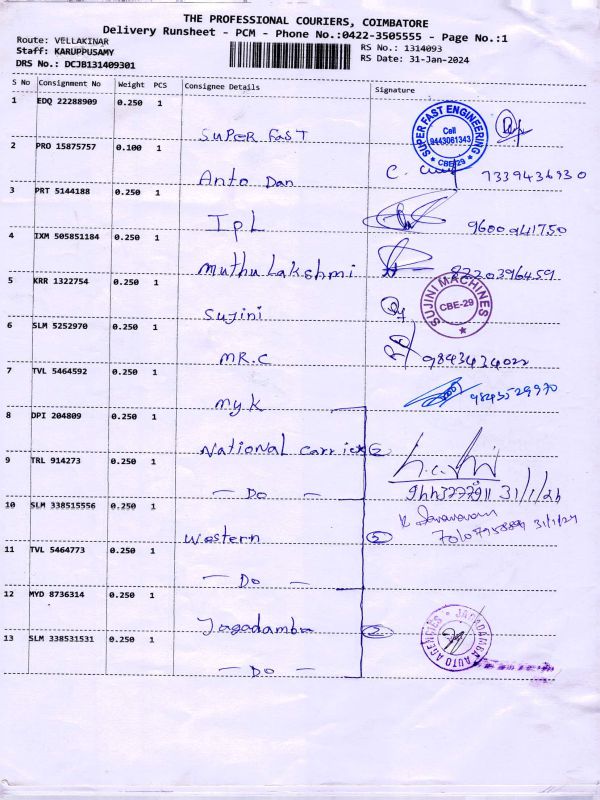 THE PROFESSIONAL COURIERS, COIMBATORE
Delivery Runsheet - PCM - Phone No.:0422-3505555 - Page No.:1
Route: VELLAKINAR
Staff: KARUPPUSAMY
DRS No.: DCJB131409301
RS No.: 1314093
RS Date: 31-Jan-2024
S No Consignment No Weight PCS Consignee Details Signature
1 EDQ 22288909 0.250 1
SUPER FAST
SUPER FAST ENGINEERING Cell 9443061343 * CBE-29 *
2 PRO 15875757 0.100 1
Anto Dan
3 PRT 5144188 0.250 1
IpL
4 IXM 505851184 0.250 1
Muthu Lakshmi 8220396459
5 KRR 1322754 0.250 1
Sujini
SUJINI MACHINES CBE-29 *
6 SLM 5252970 0.250 1
MR.C
7 TVL 5464592 0.250 1
my.k
8 DPI 204809 0.250 1
National carrier
9 TRL 914273 0.250 1
— Do — 31/1/24
10 SLM 338515556 0.250 1
Western 31/1/24
11 TVL 5464773 0.250 1
— Do —
12 MYD 8736314 0.250 1
Jagadamba 2
JAGADAMBA AUTO AGENCIES
13 SLM 338531531 0.250 1
— Do —